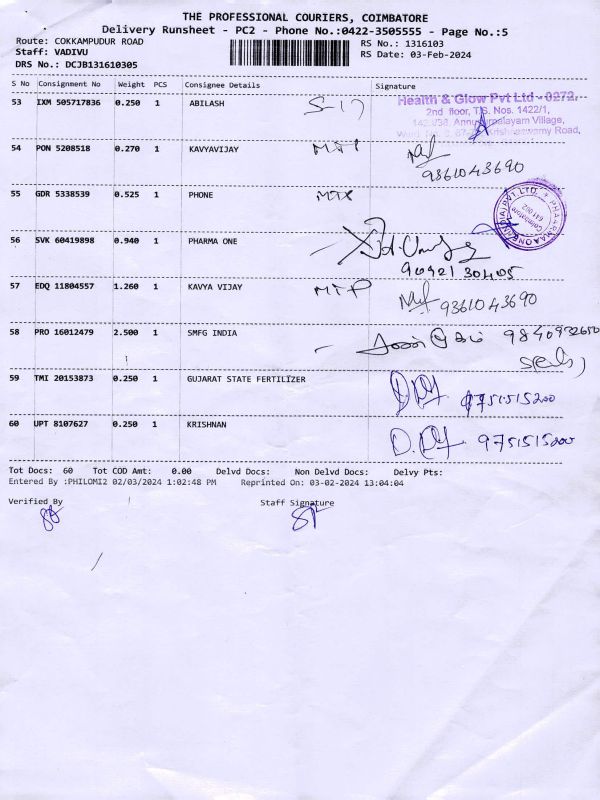 THE PROFESSIONAL COURIERS, COIMBATORE
Delivery Runsheet - PC2 - Phone No.:0422-3505555 - Page No.:5
Route: COKKAMPUDUR ROAD RS No.: 1316103
Staff: VADIVU RS Date: 03-Feb-2024
DRS No.: DCJB131610305
S No Consignment No Weight PCS Consignee Details Signature
53 IXM 505717836 0.250 1 ABILASH S-17
Health & Glow Pvt Ltd - 0272.
2nd floor, T.S. Nos. 1422/1,
Krishnaswamy Road,
54 PON 5208518 0.270 1 KAVYAVIJAY
9361043690
55 GDR 5338539 0.525 1 PHONE
Coimbatore
641 002
56 SVK 60419898 0.940 1 PHARMA ONE
90921 30405
57 EDQ 11804557 1.260 1 KAVYA VIJAY MTP 9361043690
58 PRO 16012479 2.500 1 SMFG INDIA 9840932650
59 TMI 20153873 0.250 1 GUJARAT STATE FERTILIZER 9751515200
60 UPT 8107627 0.250 1 KRISHNAN 9751515200
Tot Docs: 60 Tot COD Amt: 0.00 Delvd Docs: Non Delvd Docs: Delvy Pts:
Entered By :PHILOMI2 02/03/2024 1:02:48 PM Reprinted On: 03-02-2024 13:04:04
Verified By Staff Signature